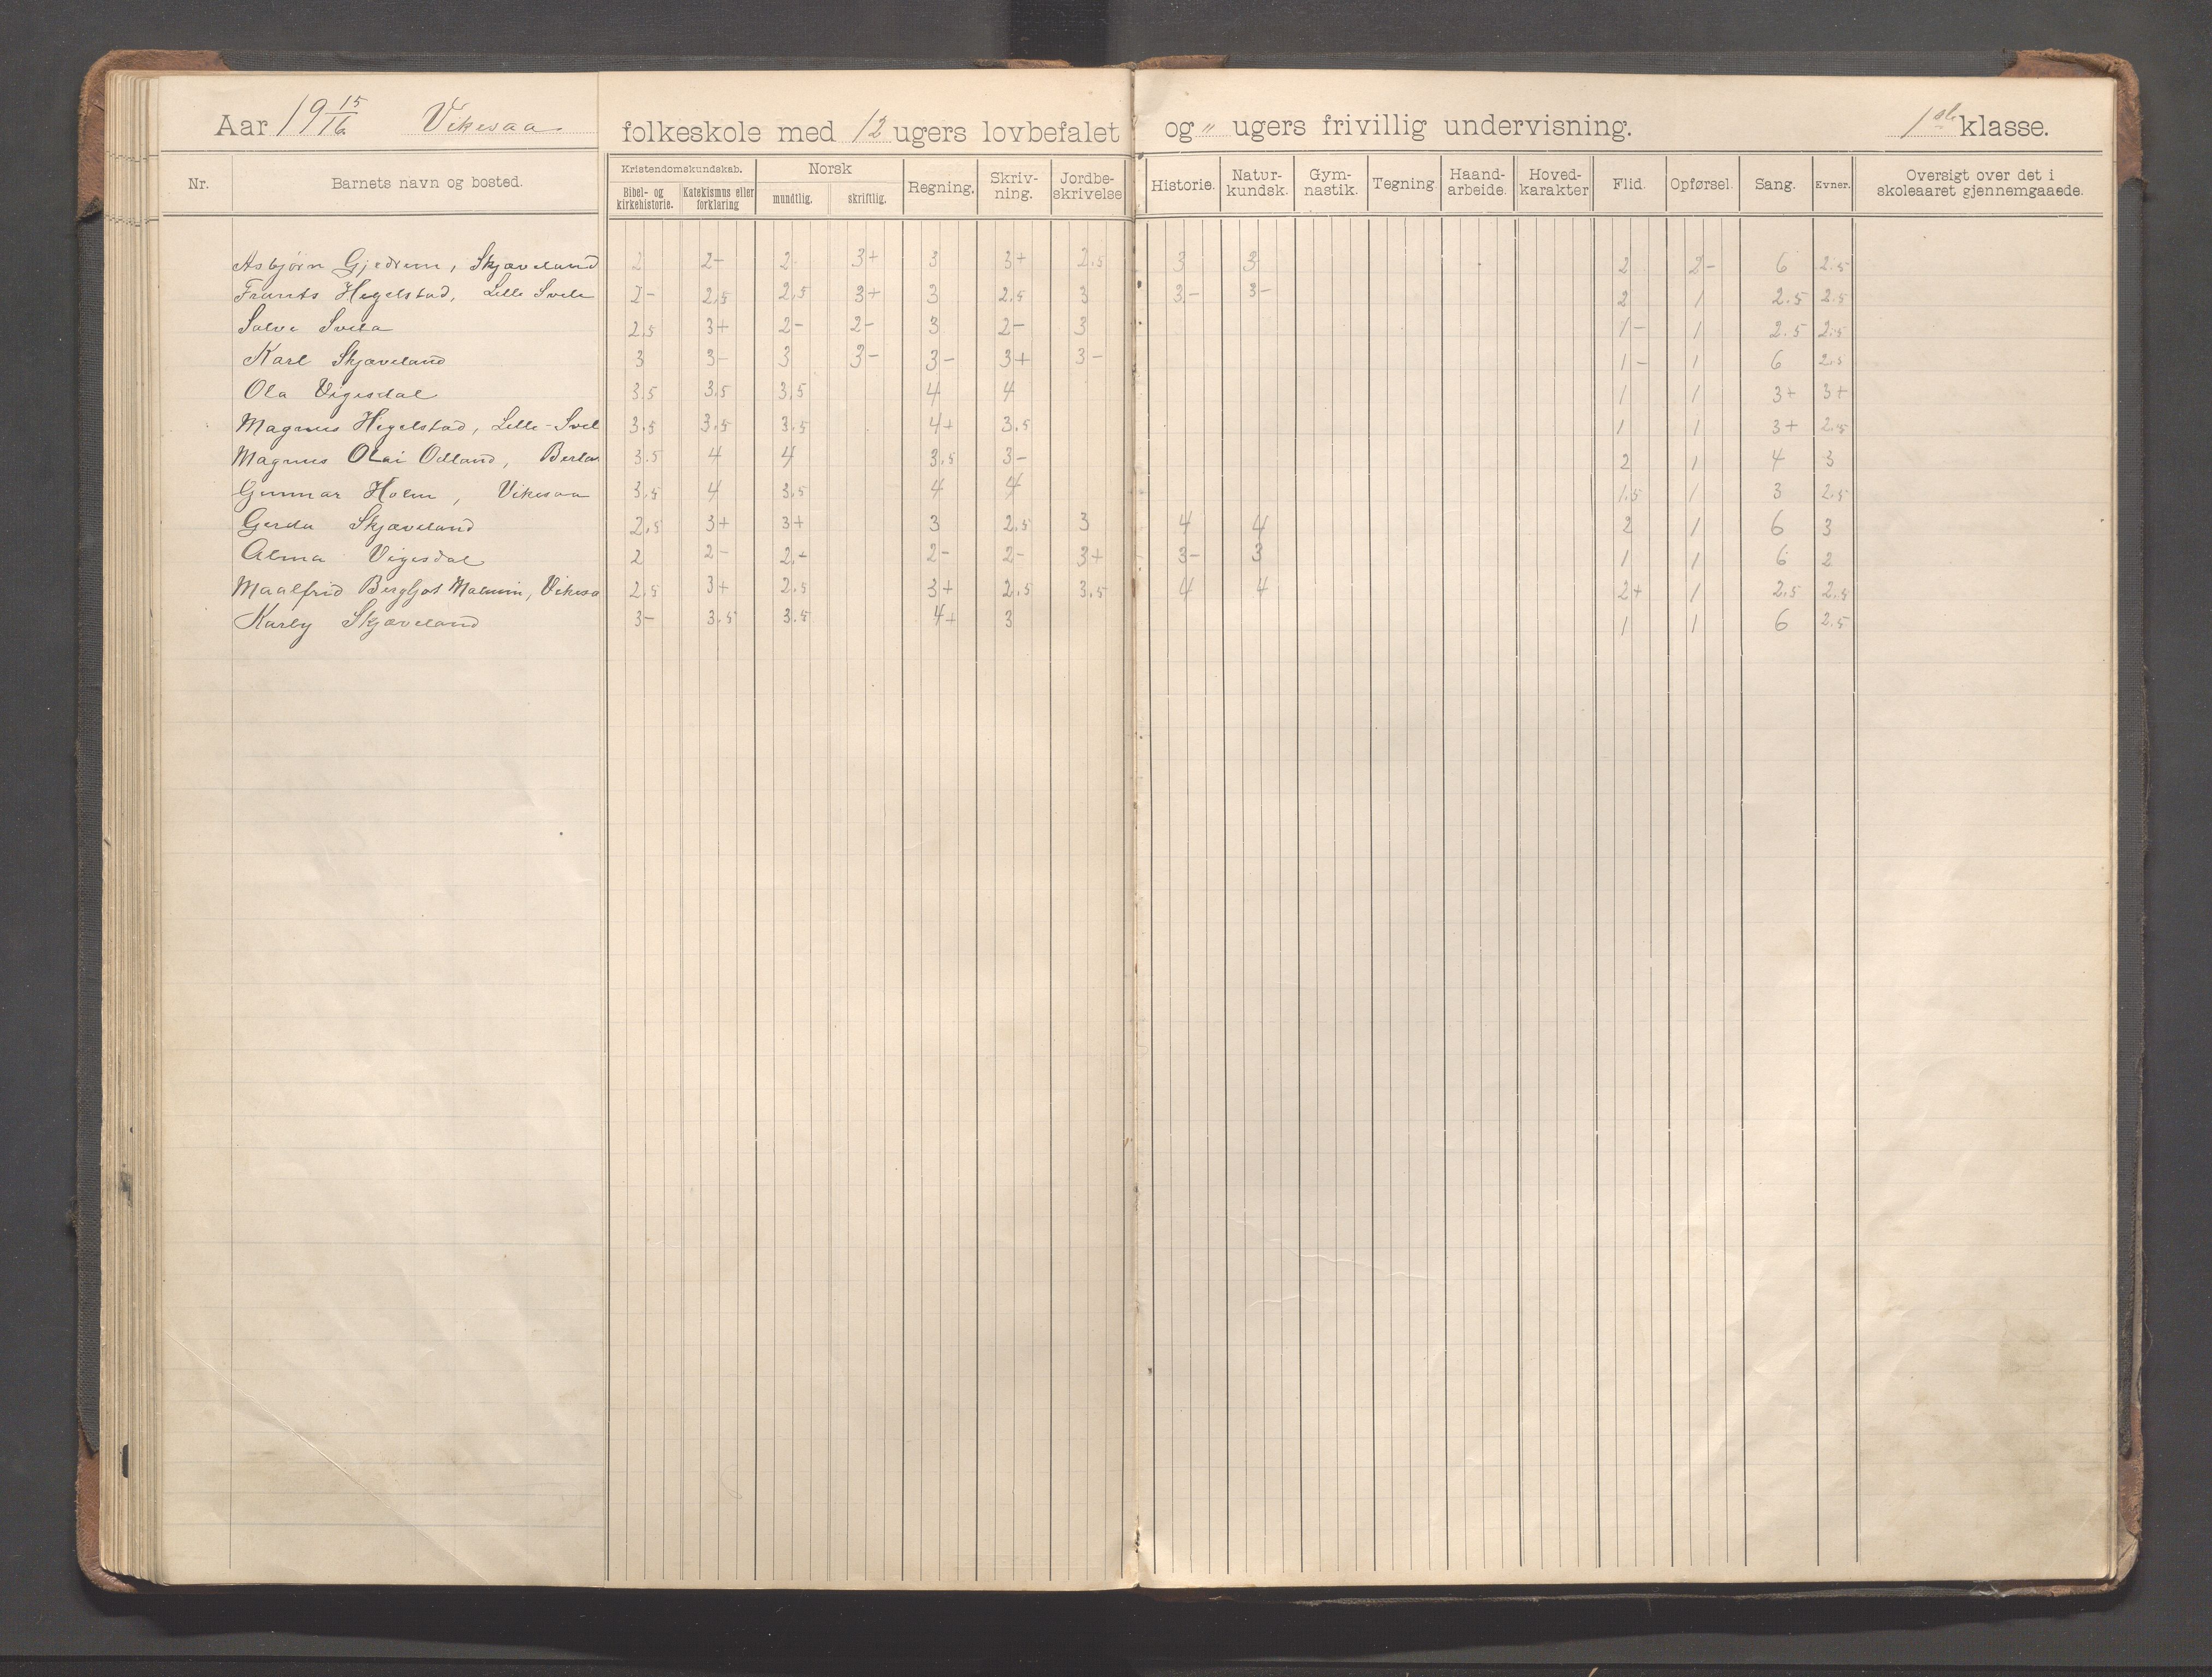 Aar 19 15/16 Vikesaa folkeskole med 12 ugers lovbefalet og " ugers frivillig undervisning. 1ste klasse.
Nr. Barnets navn og bosted. Kristendomskundskab. Bibel- og kirkehistorie. Katekismus eller forklaring Norsk mundtlig. skriftlig. Regning. Skriv-ning. Jordbe-skrivelse Historie. Natur-kundsk. Gym-nastik. Tegning. Haand-arbeide. Hoved-karakter Flid. Opførsel. Sang. Evner. Oversigt over det i skoleaaret gjennemgaaede.
Asbjørn Gjedrem, Skjæveland 2 2- 2- 3+ 3 3+ 2.5 3 3 2 2- 6 2.5
Frants Hegelstad, Lille Svela 2- 2,5 2,5 3+ 3 2,5 3 3- 3- 2 1 2.5 2.5
Salve Svela 2.5 3+ 2- 2- 3 2- 3 1- 1 2.5 2.5
Karl Skjæveland 3 3- 3 3- 3- 3+ 3- 1- 1 6 2.5
Ola Vigesdal 3.5 3.5 3.5 4 4 1 1 3+ 3+
Magnus Hegelstad, Lille-Svel 3.5 3.5 3.5 4+ 3.5 1 1 3+ 2.5
Magnus Olai Odland, 3.5 4 4 3,5 3- 2 1 4 3
Gunnar Holm, Vikesaa 3,5 4 3,5 4 4 1.5 1 3 2.5
Gerda Skjæveland 2,5 3+ 3+ 3 2.5 3 4 4 2 1 6 3
Alma Vigesdal 2 2- 2.- 2- 2- 3+ 3- 3 1 1 6 2
Maalfrid Bergljot Malmin, Vikesa 2.5 3+ 2.5 3+ 2.5 3.5 4 4 2+ 1 2,5 2.5
Karly Skjæveland 3- 3.5 3.5 4+ 3 1 1 6 2.5